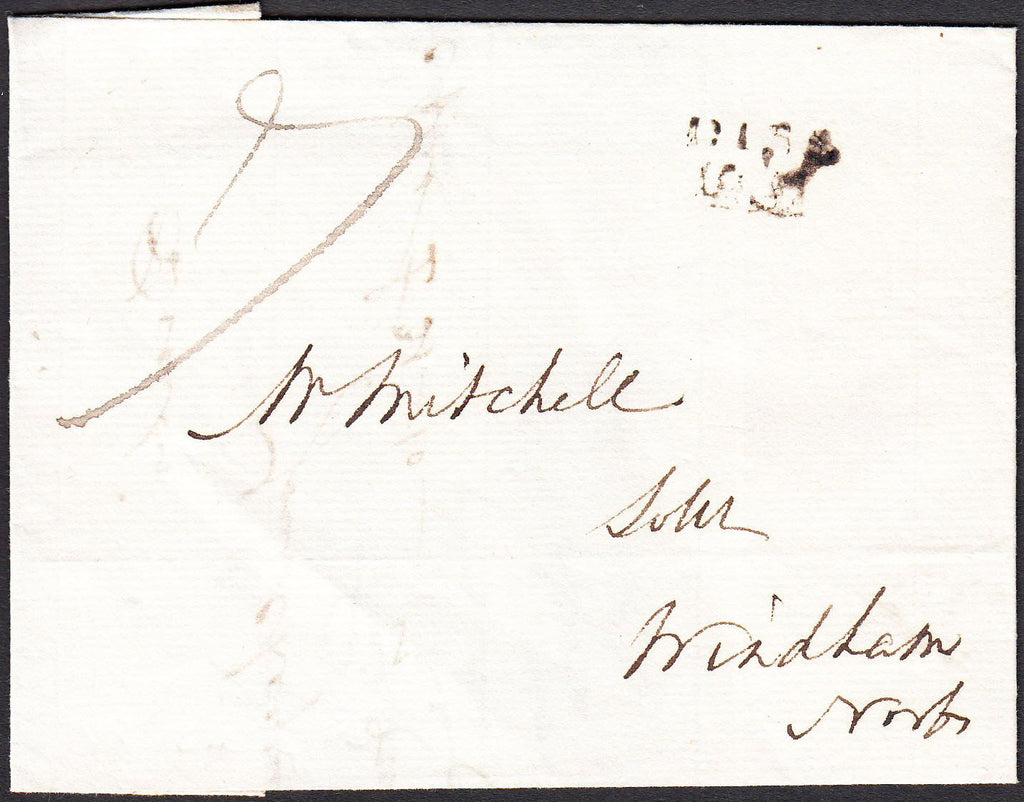 DISS
Mr Mitchell
Solr
Windham
Norf